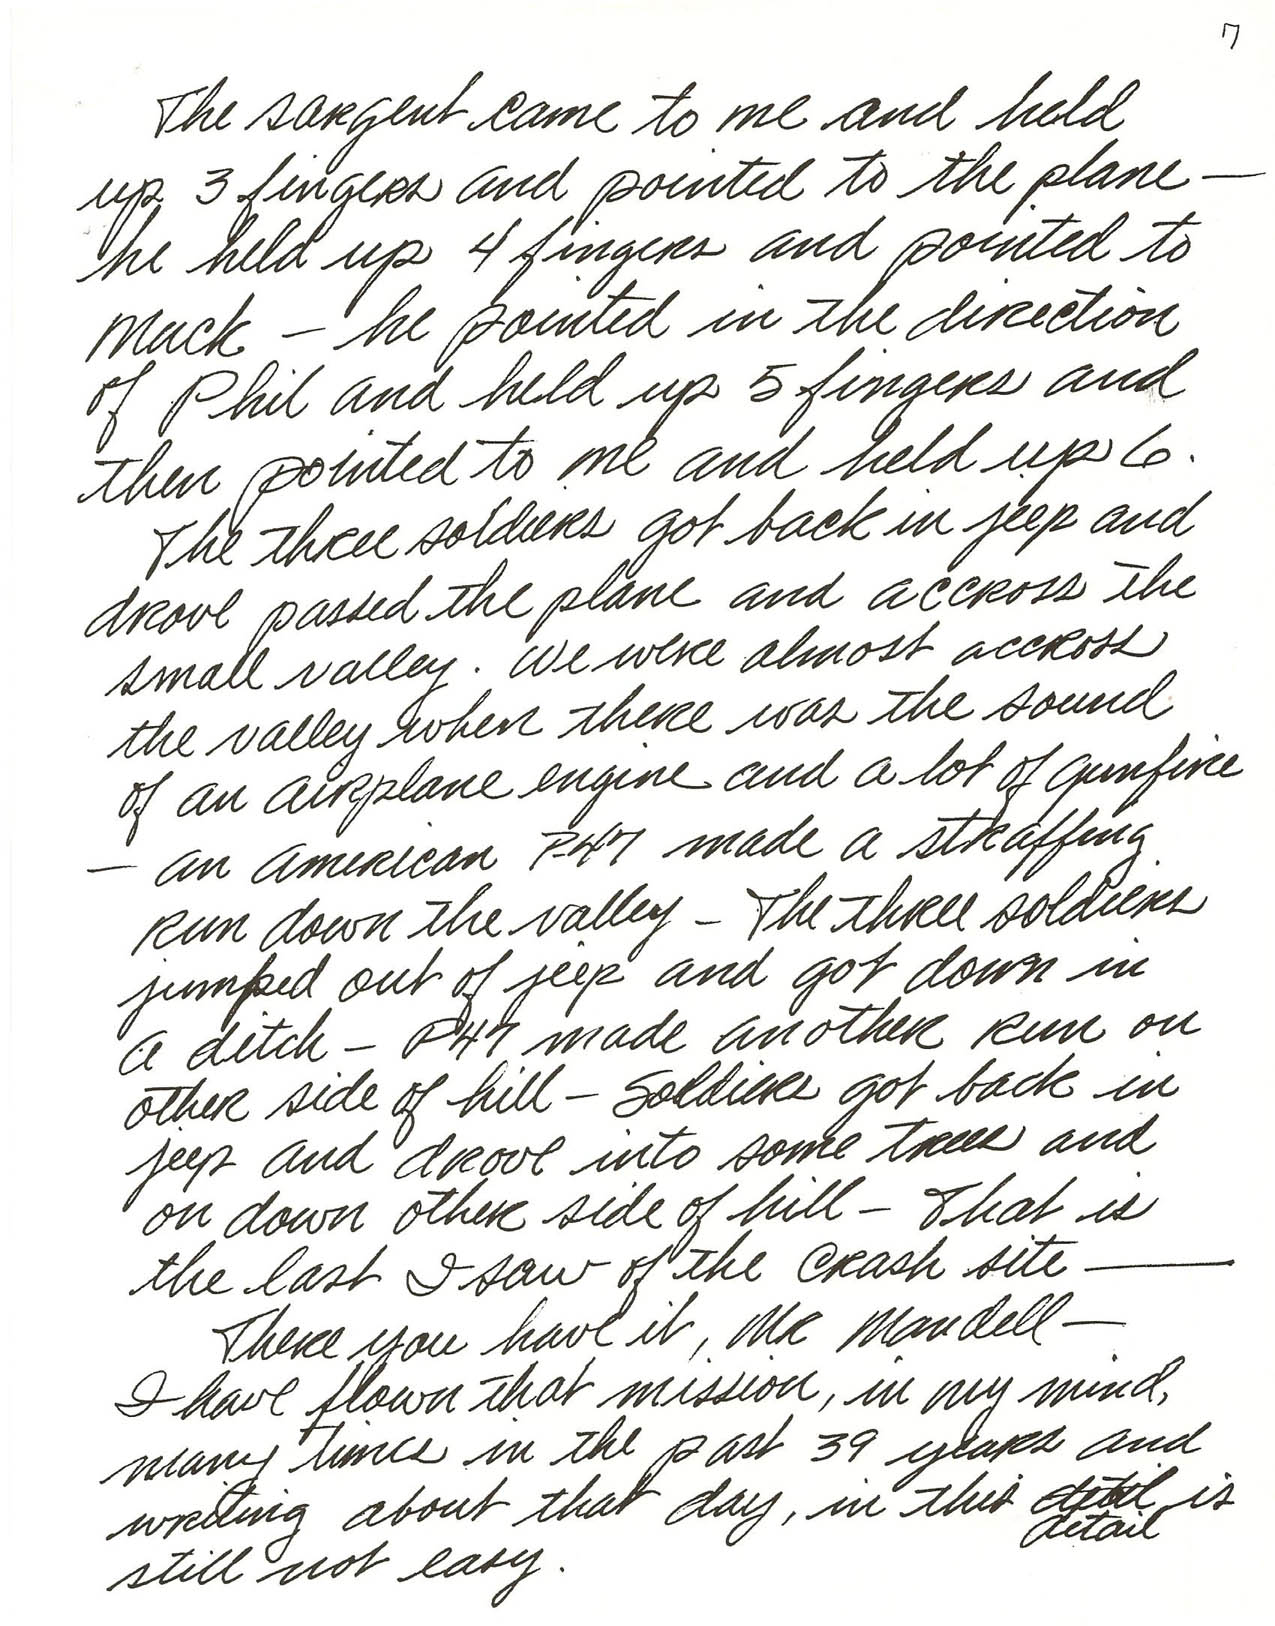 7
The sargent came to me and held
up 3 fingers and pointed to the plane —
he held up 4 fingers and pointed to
Mack — he pointed in the direction
of Phil and held up 5 fingers and
then pointed to me and held up 6.
The three soldiers got back in jeep and
drove passed the plane and accross the
small valley. We were almost accross
the valley when there was the sound
of an airplane engine and a lot of gunfire
— an American P-47 made a straffing
run down the valley — The three soldiers
jumped out of jeep and got down in
a ditch — P47 made another run on
other side of hill — Soldiers got back in
jeep and drove into some trees and
on down other side of hill — That is
the last I saw of the crash site —
There you have it, Mr Mandell —
I have flown that mission, in my mind,
many times in the past 39 years and
writing about that day, in this detail is
detail
still not easy.